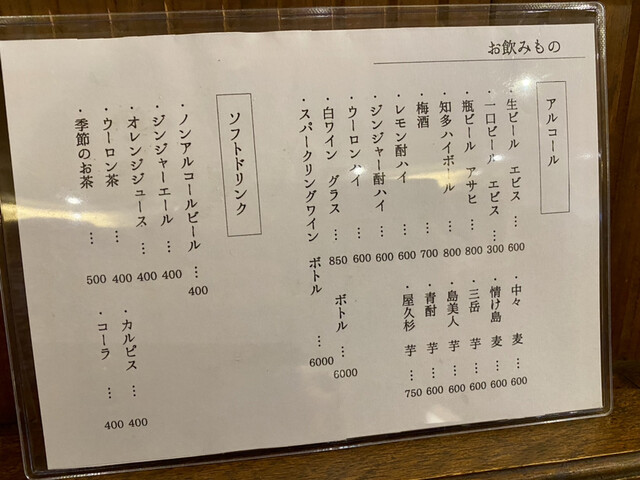 お飲みもの
アルコール
・生ビール エビス … 600
・一口ビール エビス … 300
・瓶ビール アサヒ … 800
・知多ハイボール … 800
・梅酒 … 700
・レモン酎ハイ … 600
・ジンジャー酎ハイ … 600
・ウーロンハイ … 600
・白ワイン グラス … 850 ボトル … 6000
・スパークリングワイン ボトル … 6000
・中々 麦 … 600
・情け島 麦 … 600
・三岳 芋 … 600
・島美人 芋 … 600
・青酎 芋 … 600
・屋久杉 芋 … 750
ソフトドリンク
・ノンアルコールビール … 400
・ジンジャーエール … 400
・オレンジジュース … 400
・ウーロン茶 … 400
・季節のお茶 … 500
・カルピス … 400
・コーラ … 400